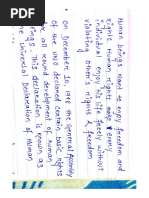 Human beings want to enjoy freedom and
rights. Human rights make every
individual enjoy his life freely without
violating others rights & freedom.
On December 10, 1948 the General Assembly
of the UNO declared certain basic rights
for all round development of human
beings. This declaration is known as
the Universal Declaration of Human